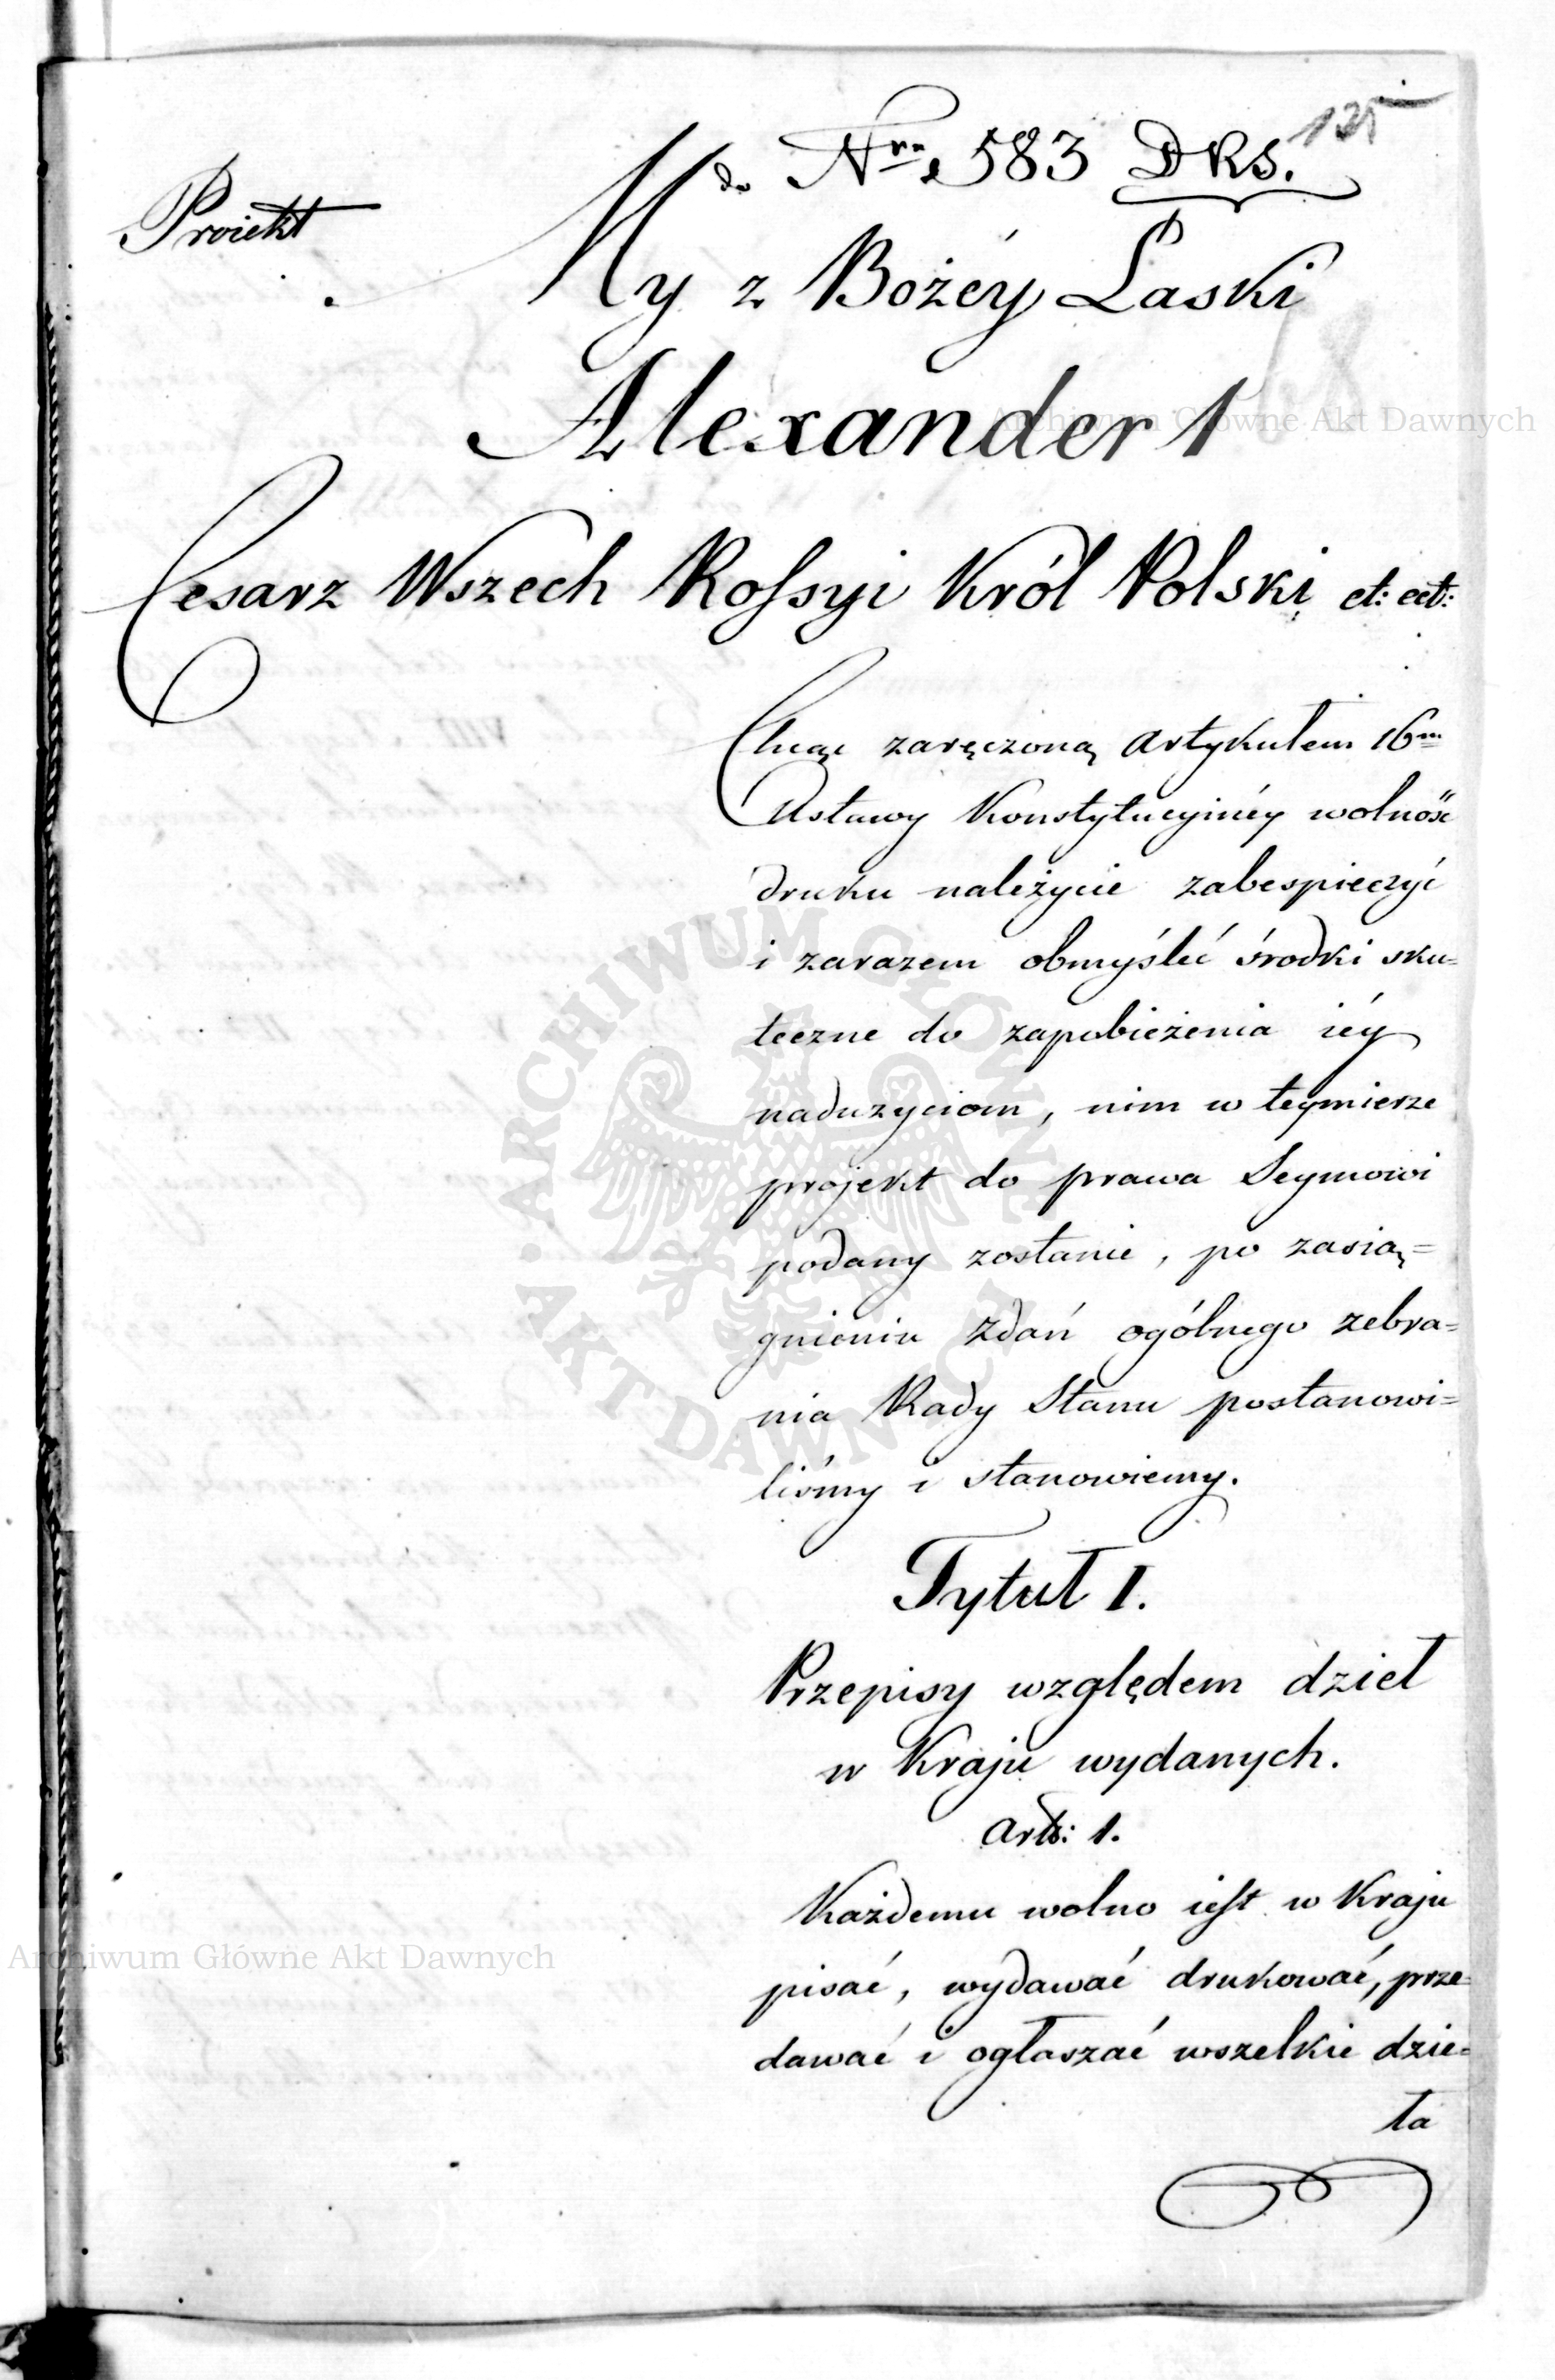 135
do Nro 583 DRS.
Proiekt
My z Bożéy Łaski
Alexander 1
Cesarz Wszech Rossyi Król Polski et: cet:
Chcąc zaręczoną Artykułem 16m
Ustawy Konstytucyinéy wolność
druku należycie zabespieczyć
i zarazem obmyśleć środki sku=
teczne do zapobieżenia iéy
nadużyciom, nim w teymierze
projekt do prawa Seymowi
podany zostanie, po zasią=
gnieniu zdań ogólnego zebra=
nia Rady Stanu postanowi=
liśmy i stanowiemy.
Tytuł I.
Przepisy względem dzieł
w Kraju wydanych.
Art: 1.
Każdemu wolno iest w Kraju
pisać, wydawać drukować, prze=
dawać i ogłaszać wszelkie dzie=
ła
Archiwum Główne Akt Dawnych
ARCHIWUM GŁÓWNE AKT DAWNYCH
Archiwum Główne Akt Dawnych